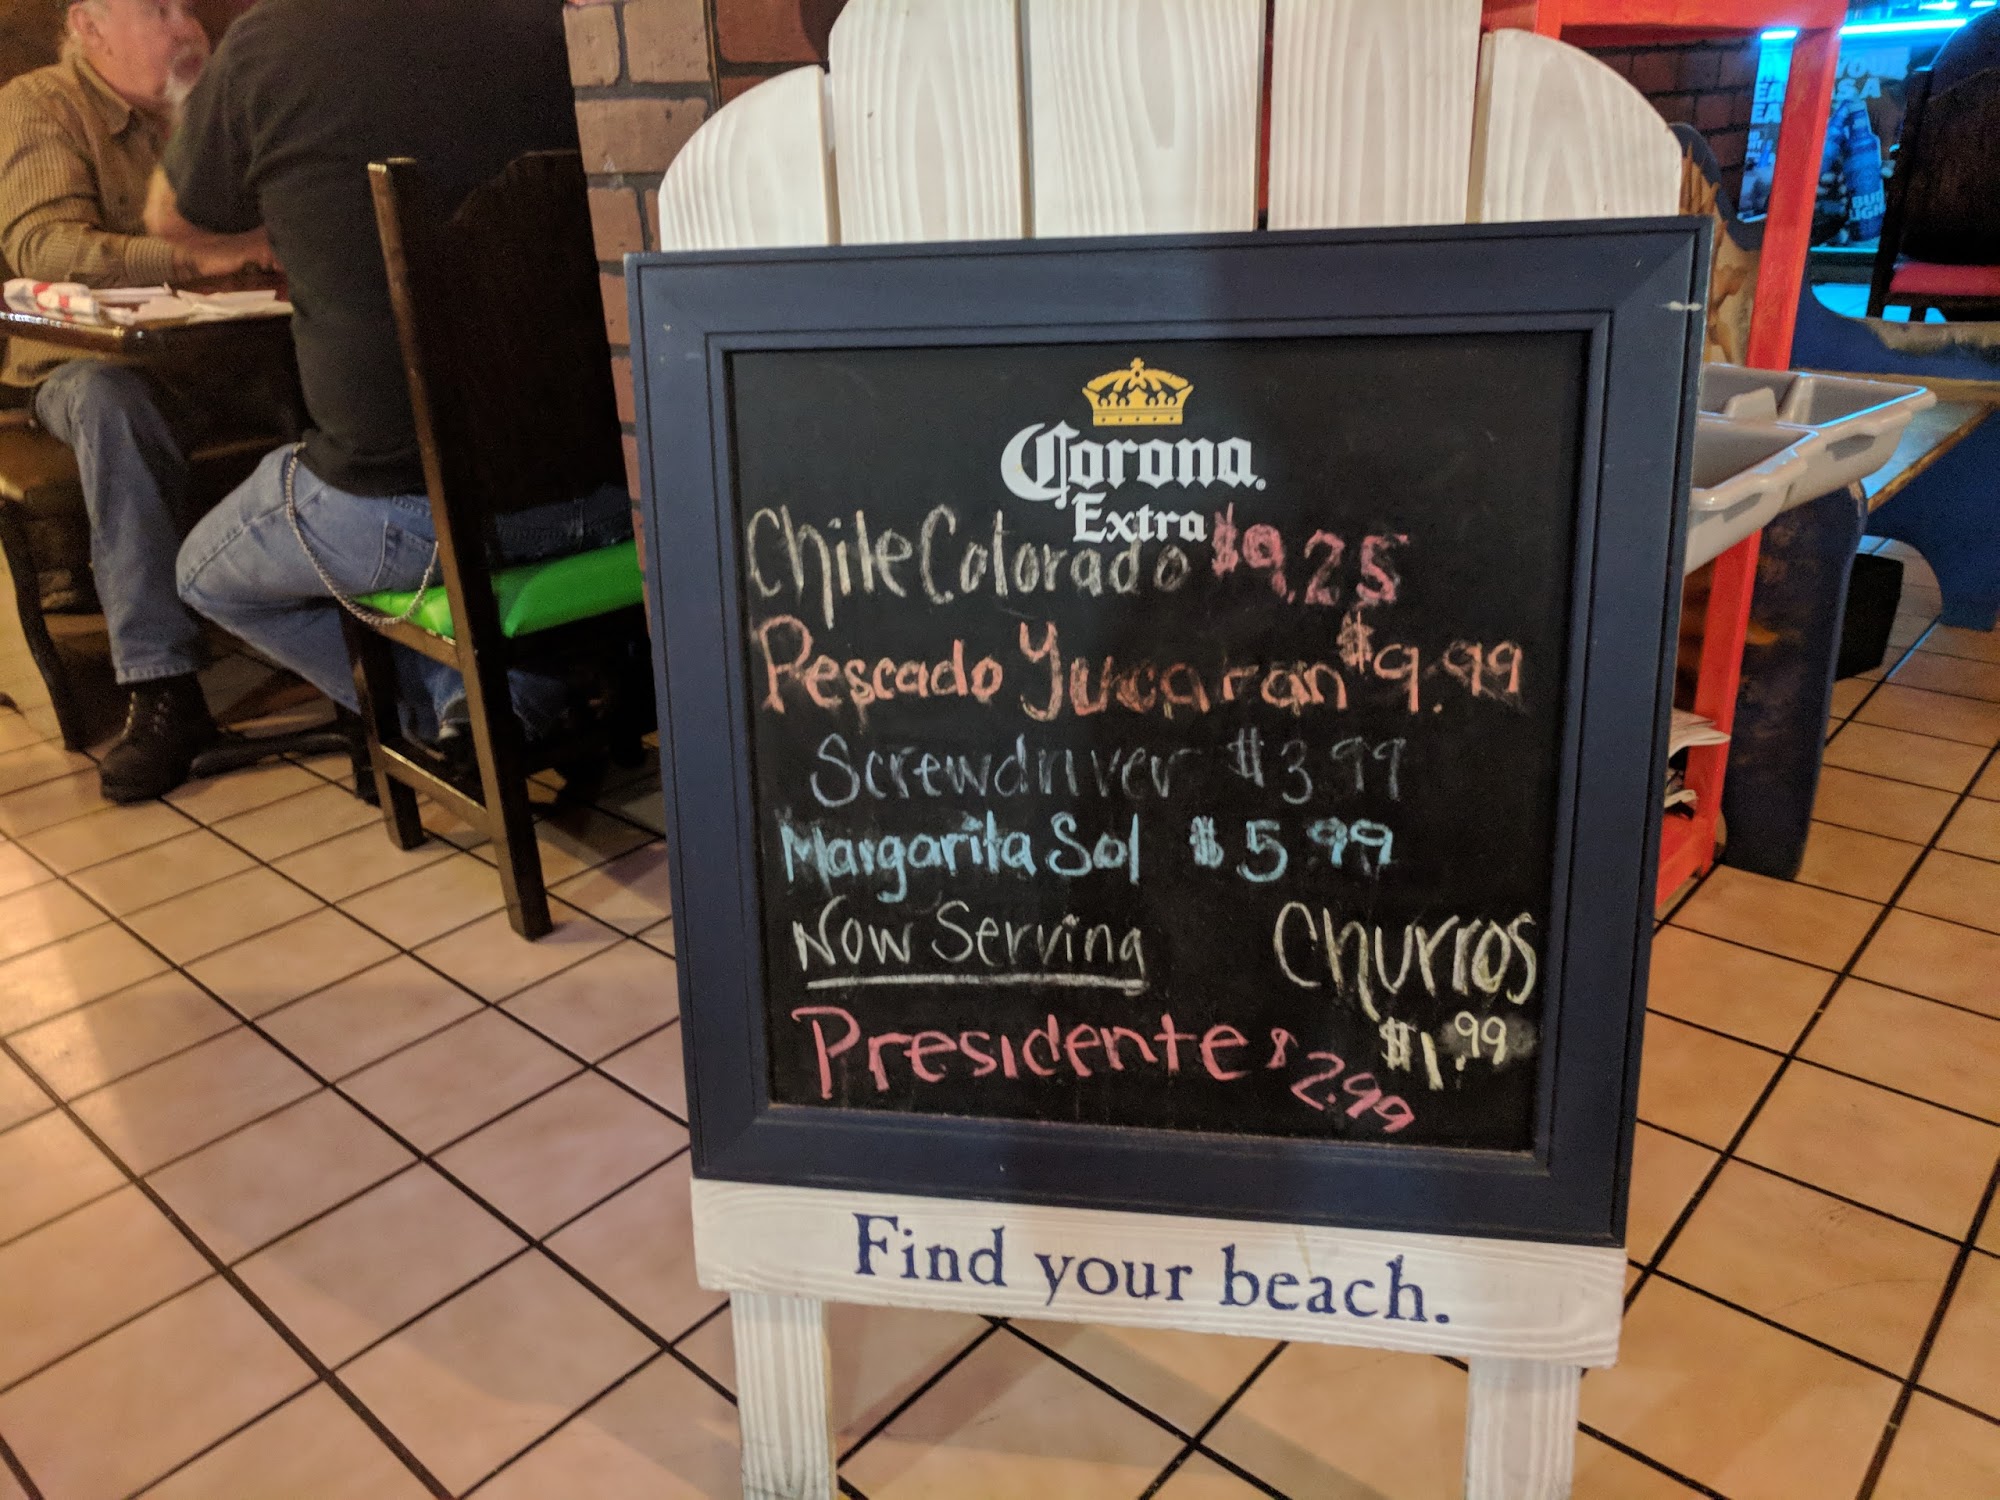 Corona
Extra
Chile Colorado $9.25
Pescado Yucaran $9.99
Screwdriver $3.99
Margarita Sol $5.99
Now Serving
Churros
$1.99
Presidente $2.99
Find your beach.
BUD
LIGHT